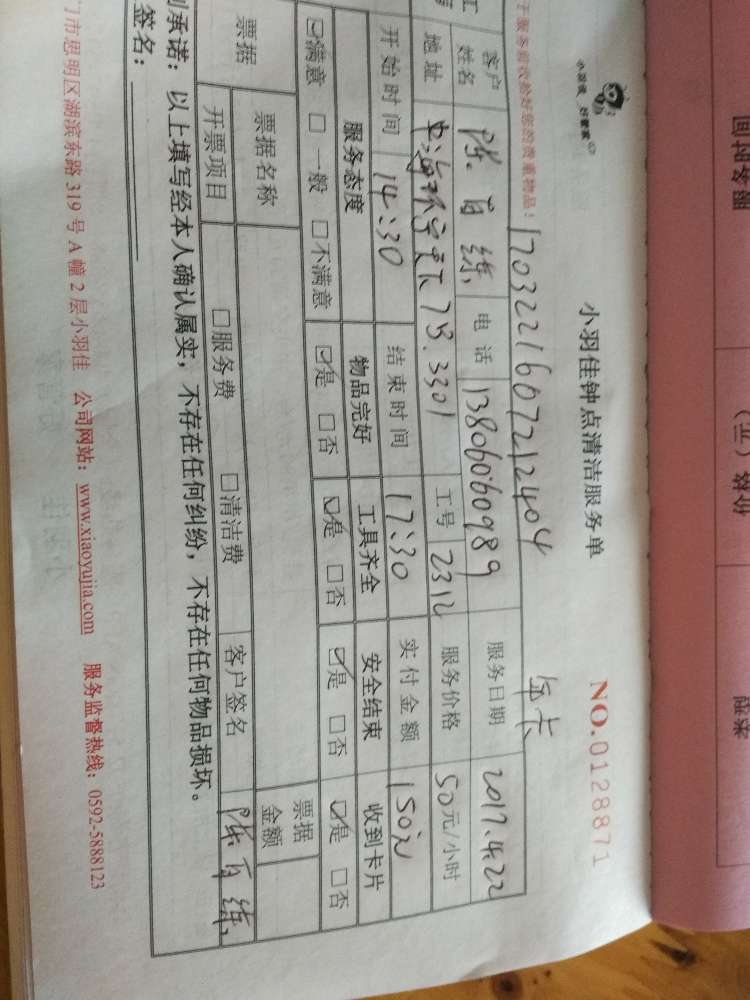 小羽佳 好管家
小羽佳钟点清洁服务单
NO.0128871
于服务前收拾好您的贵重物品！
1703221607212404
年卡
客户姓名 陈百练 电话 13806060989 服务日期 2017.4.22
地址 7B.3301 工号 2312 服务价格 50元/小时
开始时间 14:30 结束时间 17:30 实付金额 150元
服务态度 物品完好 工具齐全 安全结束 收到卡片
☑满意 □一般 □不满意 ☑是 □否 ☑是 □否 ☑是 □否 ☑是 □否
票据 票据名称 票据金额
开票项目 □服务费 □清洁费 客户签名 陈百练
承诺：以上填写经本人确认属实，不存在任何纠纷，不存在任何物品损坏。
签名：
门市思明区湖滨东路 319 号 A 幢 2 层小羽佳 公司网站：www.xiaoyujia.com 服务监督热线：0592-5888123